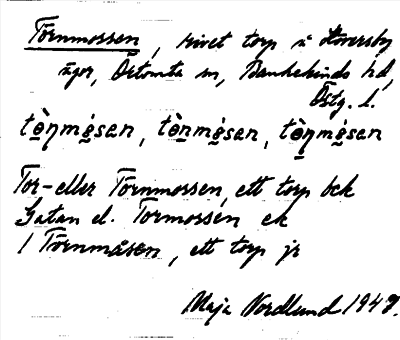 Tornmossen, rivet torp å Storeby
ägor, Örtomta sn, Bankekinds hd,
Östg. l.
tòŋmɷ̀sen, tònmɷ̀sen, tòŋmɷ̀sen
Tor- eller Tornmossen, ett torp bek
Gatan el. Tormossen ek
/ Tornmåsen, ett torp jr
Maja Nordlund 1947.